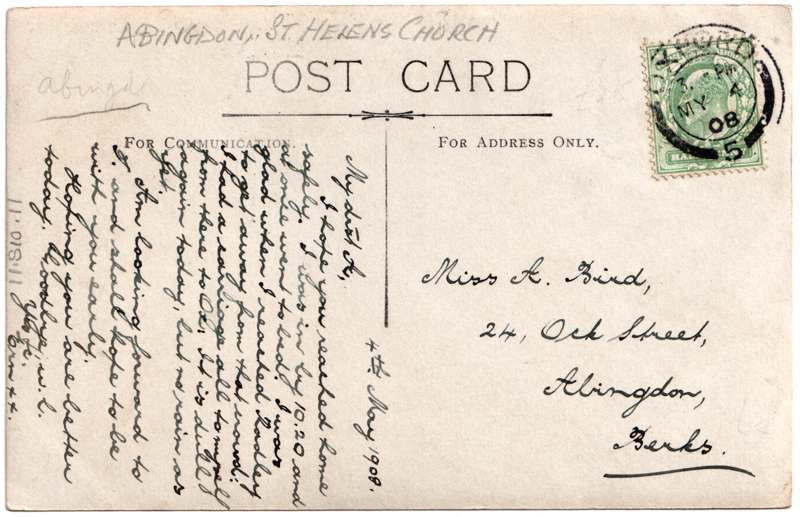 ABINGDON, ST HELENS CHURCH
abingd
POST CARD
FOR COMMUNICATION.
FOR ADDRESS ONLY.
OXFORD
MY 4
08
5
4th May 1908.
My dist A,
I hope you reached home
safely. I was in by 10.20 and
at once went to bed. I was
glad when I reached Radley
to get away from that crowd.
I had a carriage all to myself
from there to Ox. It is dull
again today, but no rain as
yet.
Am looking forward to
T. and shall hope to be
with you early.
Hoping you are better
today. Goodbye, w. l.
Ern xx.
11.810.11
Miss A. Bird,
24, Ock Street,
Abingdon,
Berks.